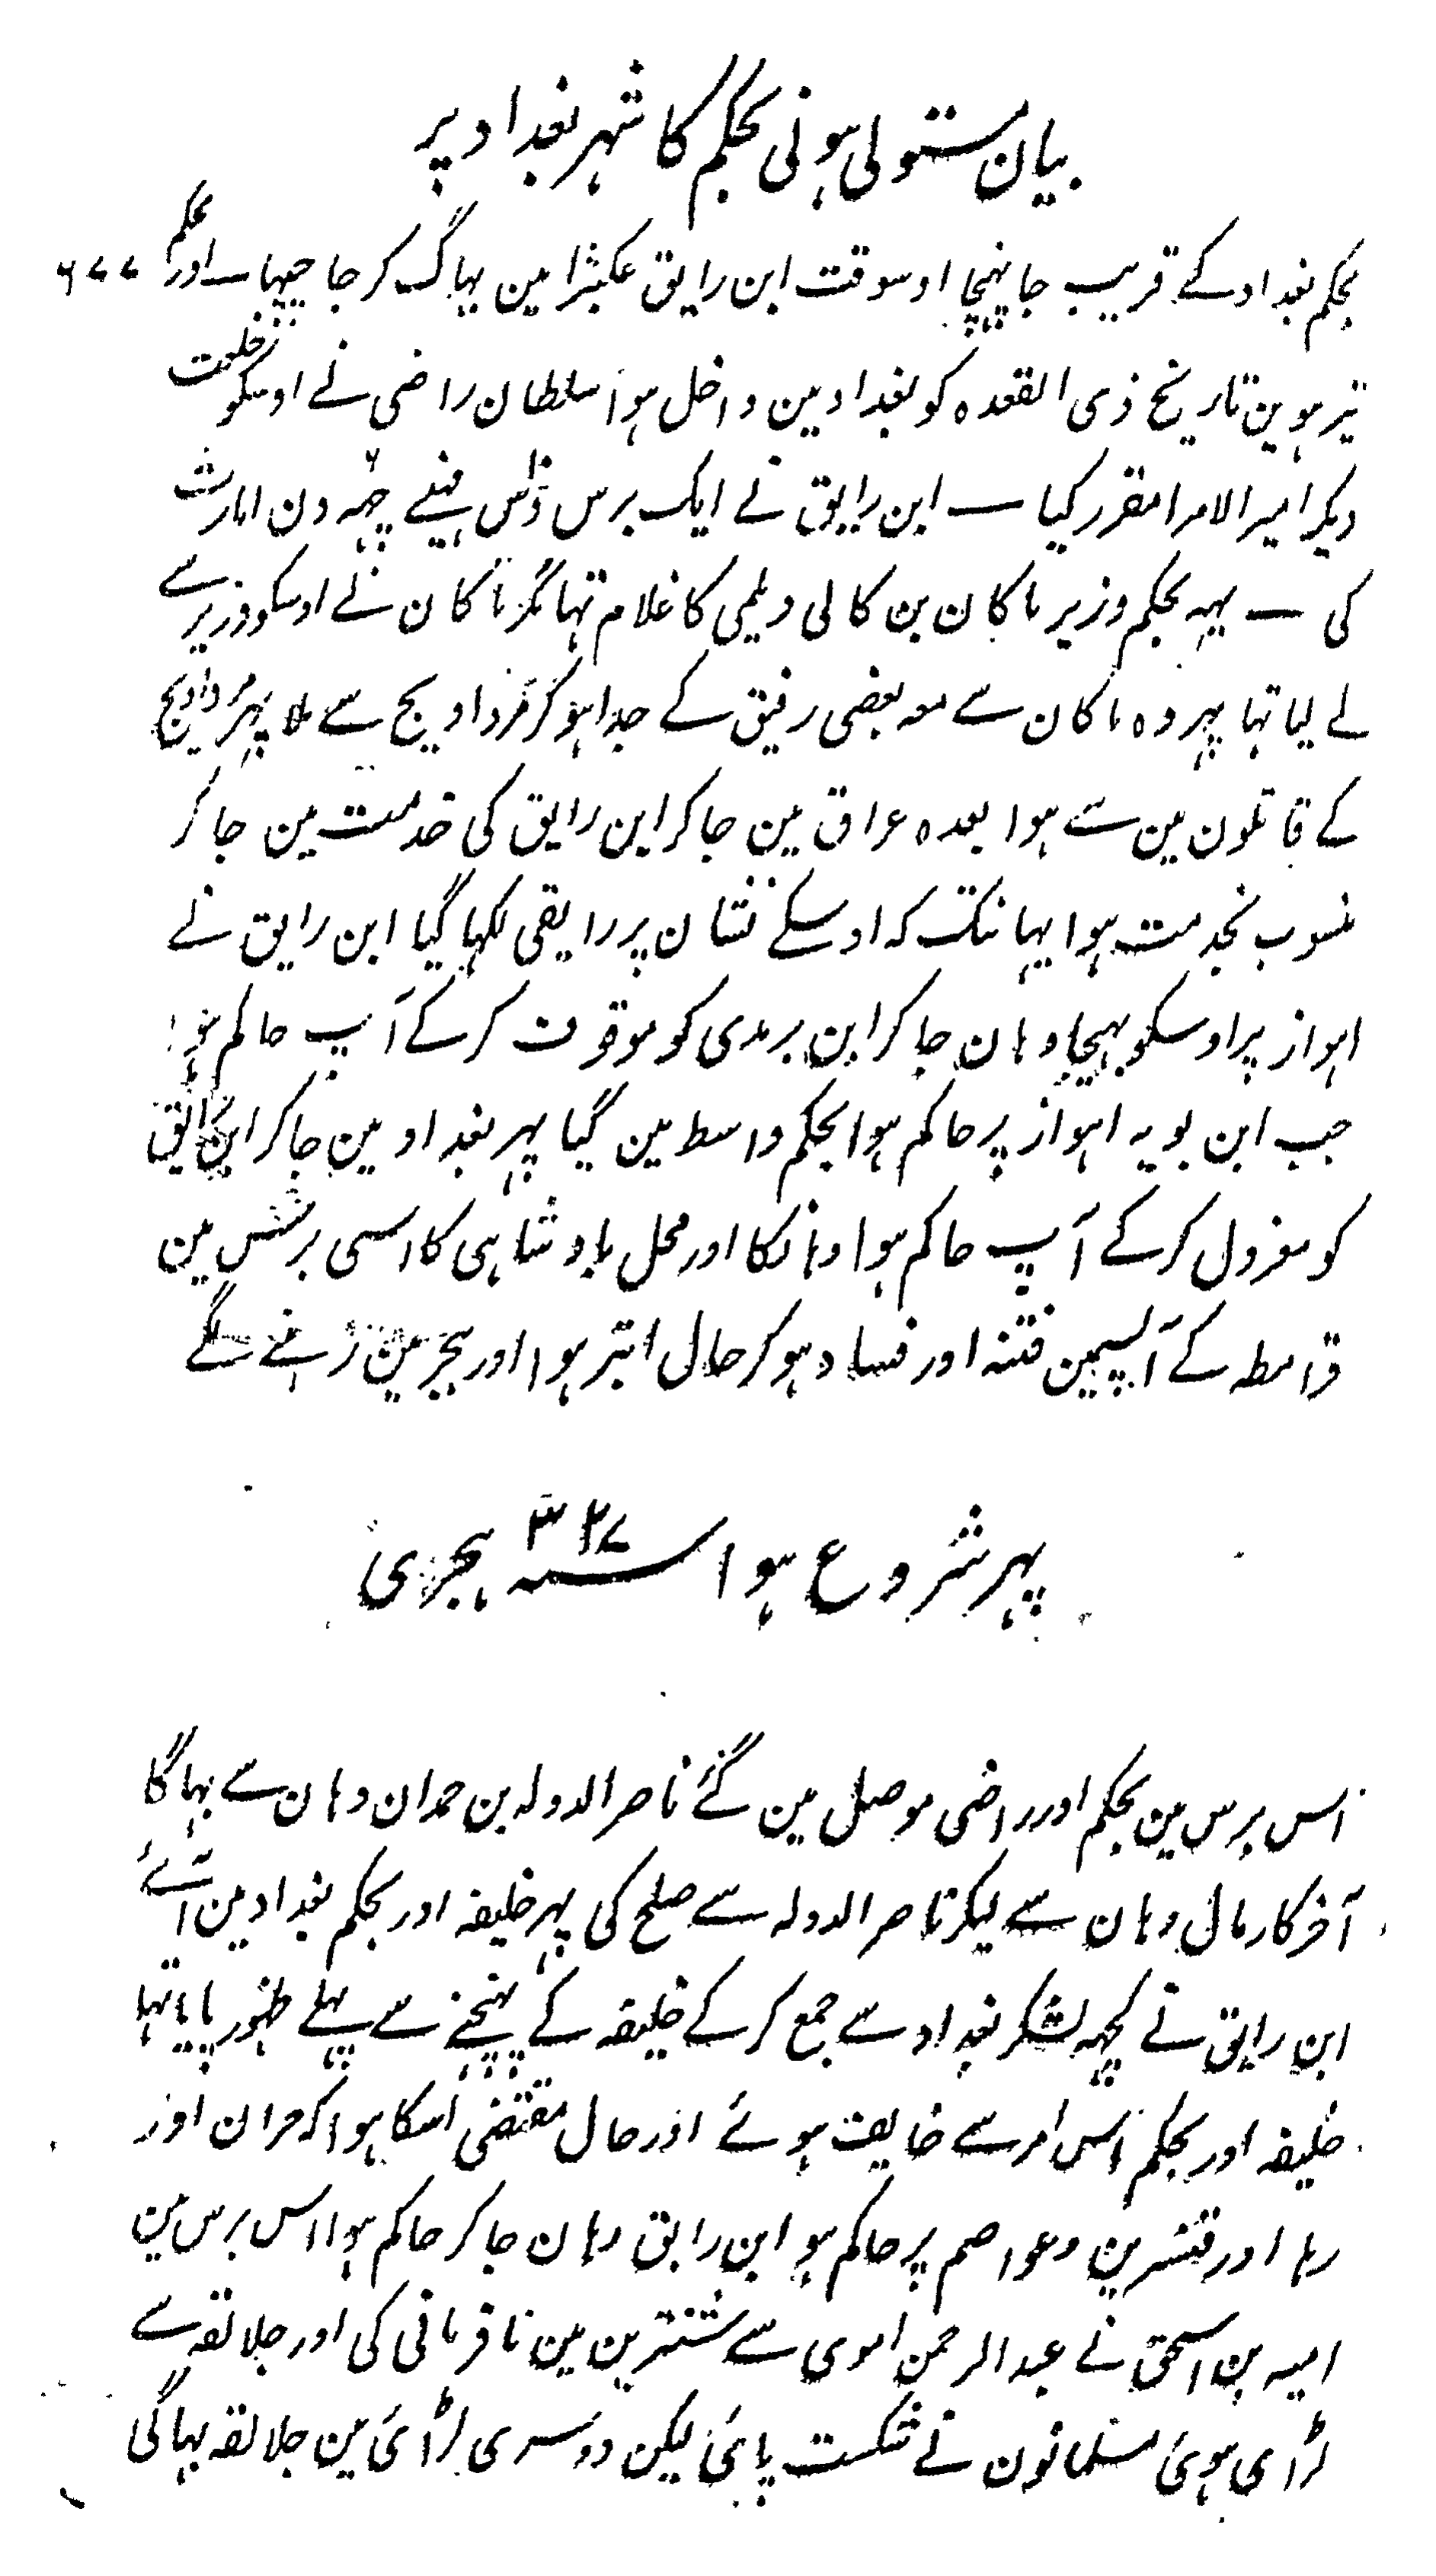 بیان مستولی ہونی بجکم کا شہر بغداد پر
بجکم بغداد کے قریب جا پہنچا اوسوقت ابن رایق عکبرا مین بہاگ کر جا چہپا ــ اور بجکم ۶۷۷
تیرہوین تاریخ ذی القعدہ کو بغداد مین داخل ہوا سلطان راضی نے اوسکو خلعت
دیکر امیر الامرا مقرر کیا ــ ابن رایق نے ایک برس دس مہینے چہہ دن امارت
کی ــ یہہ بجکم وزیر ماکان بن کالی دیلمی کا غلام تہا مگر ماکان نے اوسکو وزیر سے
لے لیا تہا پہر وہ ماکان سے معہ بعضی رفیق کے جدا ہو کر مرداویج سے ملا پہر مرداویج
کے قاتلون مین سے ہوا بعدہ عراق مین جا کر ابن رایق کی خدمت مین جا کر
منسوب بخدمت ہوا یہانتک کہ اوسکے نشان پر رایقی لکہا گیا ابن رایق نے
اہواز پر اوسکو بہیجا وہان جا کر ابن بریدی کو موقوف کر کے آپ حاکم ہوا
جب ابن بویہ اہواز پر حاکم ہوا بجکم واسط مین گیا پہر بغداد مین جا کر ابن رایق
کو معزول کر کے آپ حاکم ہوا وہانکا اور محل بادشاہی کا اسی برس مین
قرامطہ کے آپسمین فتنہ اور فساد ہو کر حال ابتر ہوا اور ہجر مین رہنے لگے
پہر شروع ہوا سنہ ۳۲۷ ہجری
اس برس مین بجکم اور راضی موصل مین گئے ناصر الدولہ بن حمدان وہان سے بہاگا
آخر کار مال وہان سے لیکر ناصر الدولہ سے صلح کی پہر خلیفہ اور بجکم بغداد مین آئے
ابن رایق نے کچہہ لشکر بغداد سے جمع کر کے خلیفہ کے پہنچنے سے پہلے ظہور پایا تہا
خلیفہ اور بجکم اس امر سے خایف ہوئے اور حال مقتضی اسکا ہوا کہ حران اور
رہا اور قنسرین و عواصم پر حاکم ہو ابن رایق وہان جا کر حاکم ہوا اس برس مین
امیہ بن اسحق نے عبد الرحمن اموی سے شنترین مین نافرمانی کی اور جلالقہ سے
لڑای ہوئ مسلمانون نے شکست پائ لیکن دوسری لڑائ مین جلالقہ بہاگی